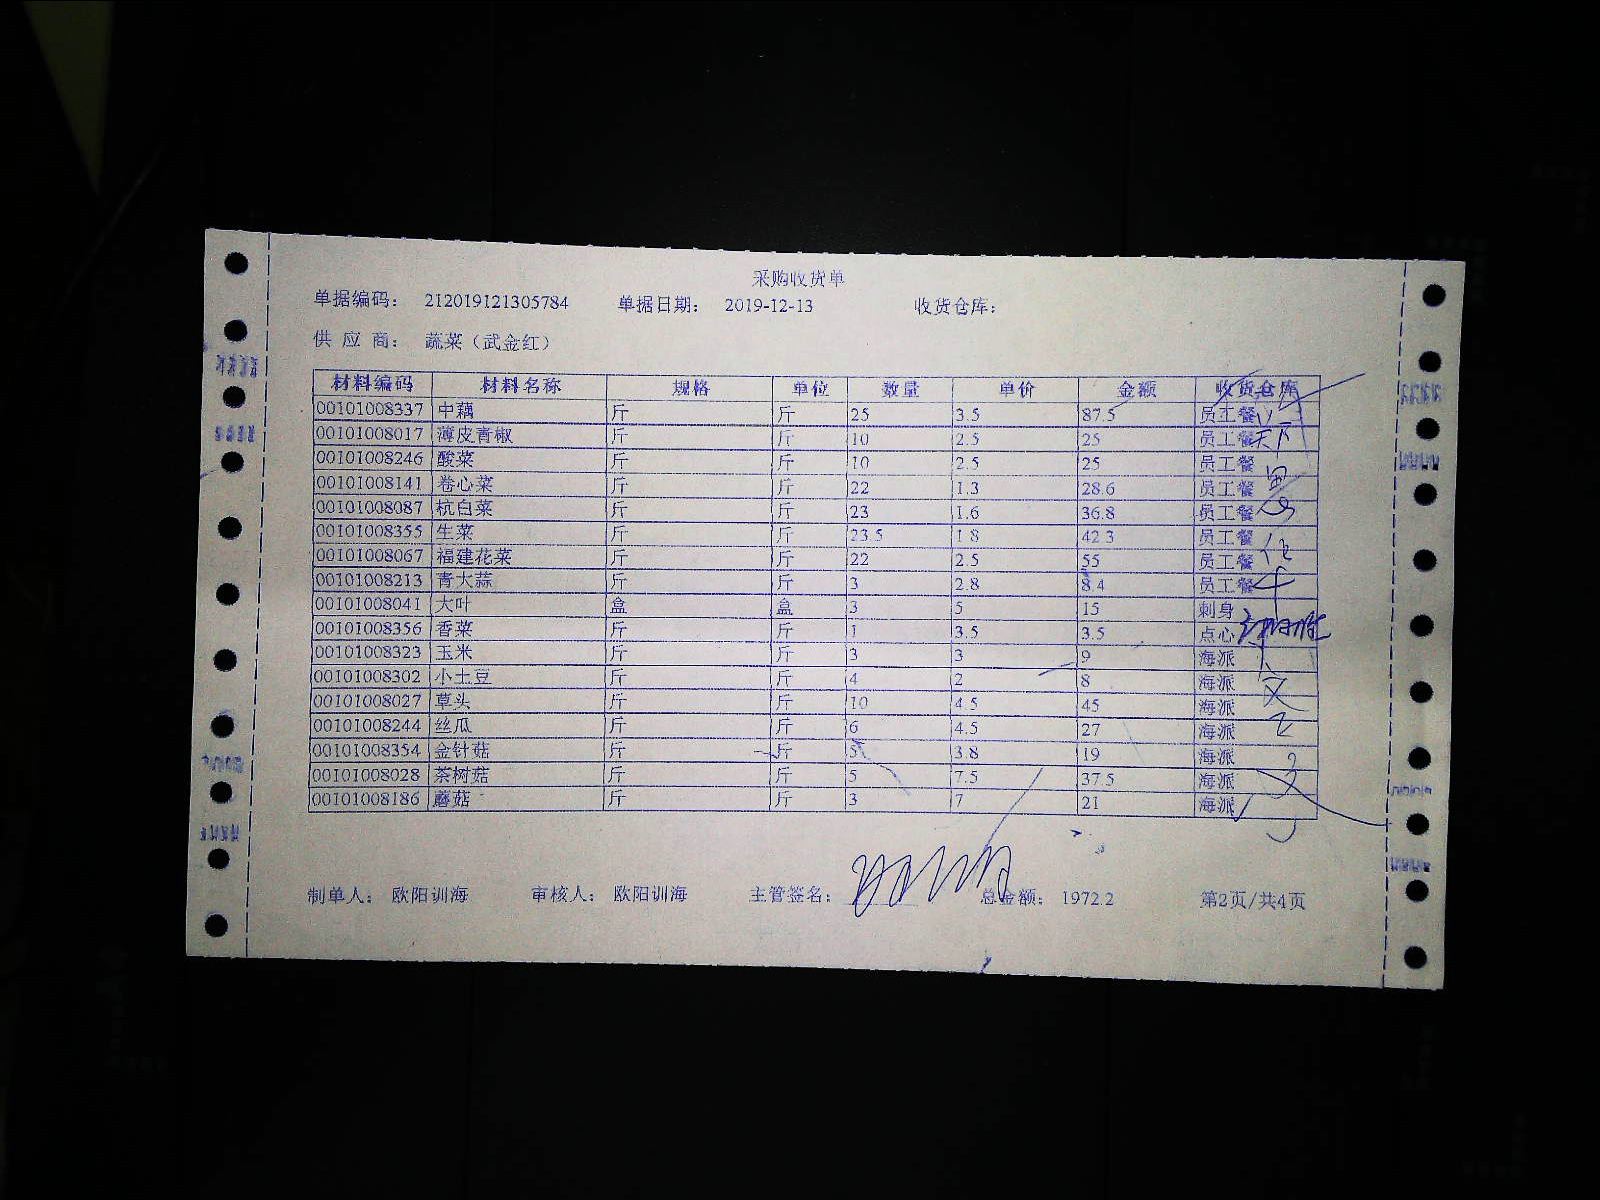 采购收货单
单据编码： 212019121305784 单据日期： 2019-12-13 收货仓库：
供 应 商： 蔬菜（武金红）
材料编码 材料名称 规格 单位 数量 单价 金额 收货仓库
00101008337 中藕 斤 斤 25 3.5 87.5 员工餐
00101008017 薄皮青椒 斤 斤 10 2.5 25 员工餐
00101008246 酸菜 斤 斤 10 2.5 25 员工餐
00101008141 卷心菜 斤 斤 22 1.3 28.6 员工餐
00101008087 杭白菜 斤 斤 23 1.6 36.8 员工餐
00101008355 生菜 斤 斤 23.5 1.8 42.3 员工餐
00101008067 福建花菜 斤 斤 22 2.5 55 员工餐
00101008213 青大蒜 斤 斤 3 2.8 8.4 员工餐
00101008041 大叶 盒 盒 3 5 15 刺身
00101008356 香菜 斤 斤 1 3.5 3.5 点心
00101008323 玉米 斤 斤 3 3 9 海派
00101008302 小土豆 斤 斤 4 2 8 海派
00101008027 草头 斤 斤 10 4.5 45 海派
00101008244 丝瓜 斤 斤 6 4.5 27 海派
00101008354 金针菇 斤 斤 5 3.8 19 海派
00101008028 茶树菇 斤 斤 5 7.5 37.5 海派
00101008186 蘑菇 斤 斤 3 7 21 海派
制单人： 欧阳训海 审核人： 欧阳训海 主管签名： 总金额： 1972.2 第2页/共4页